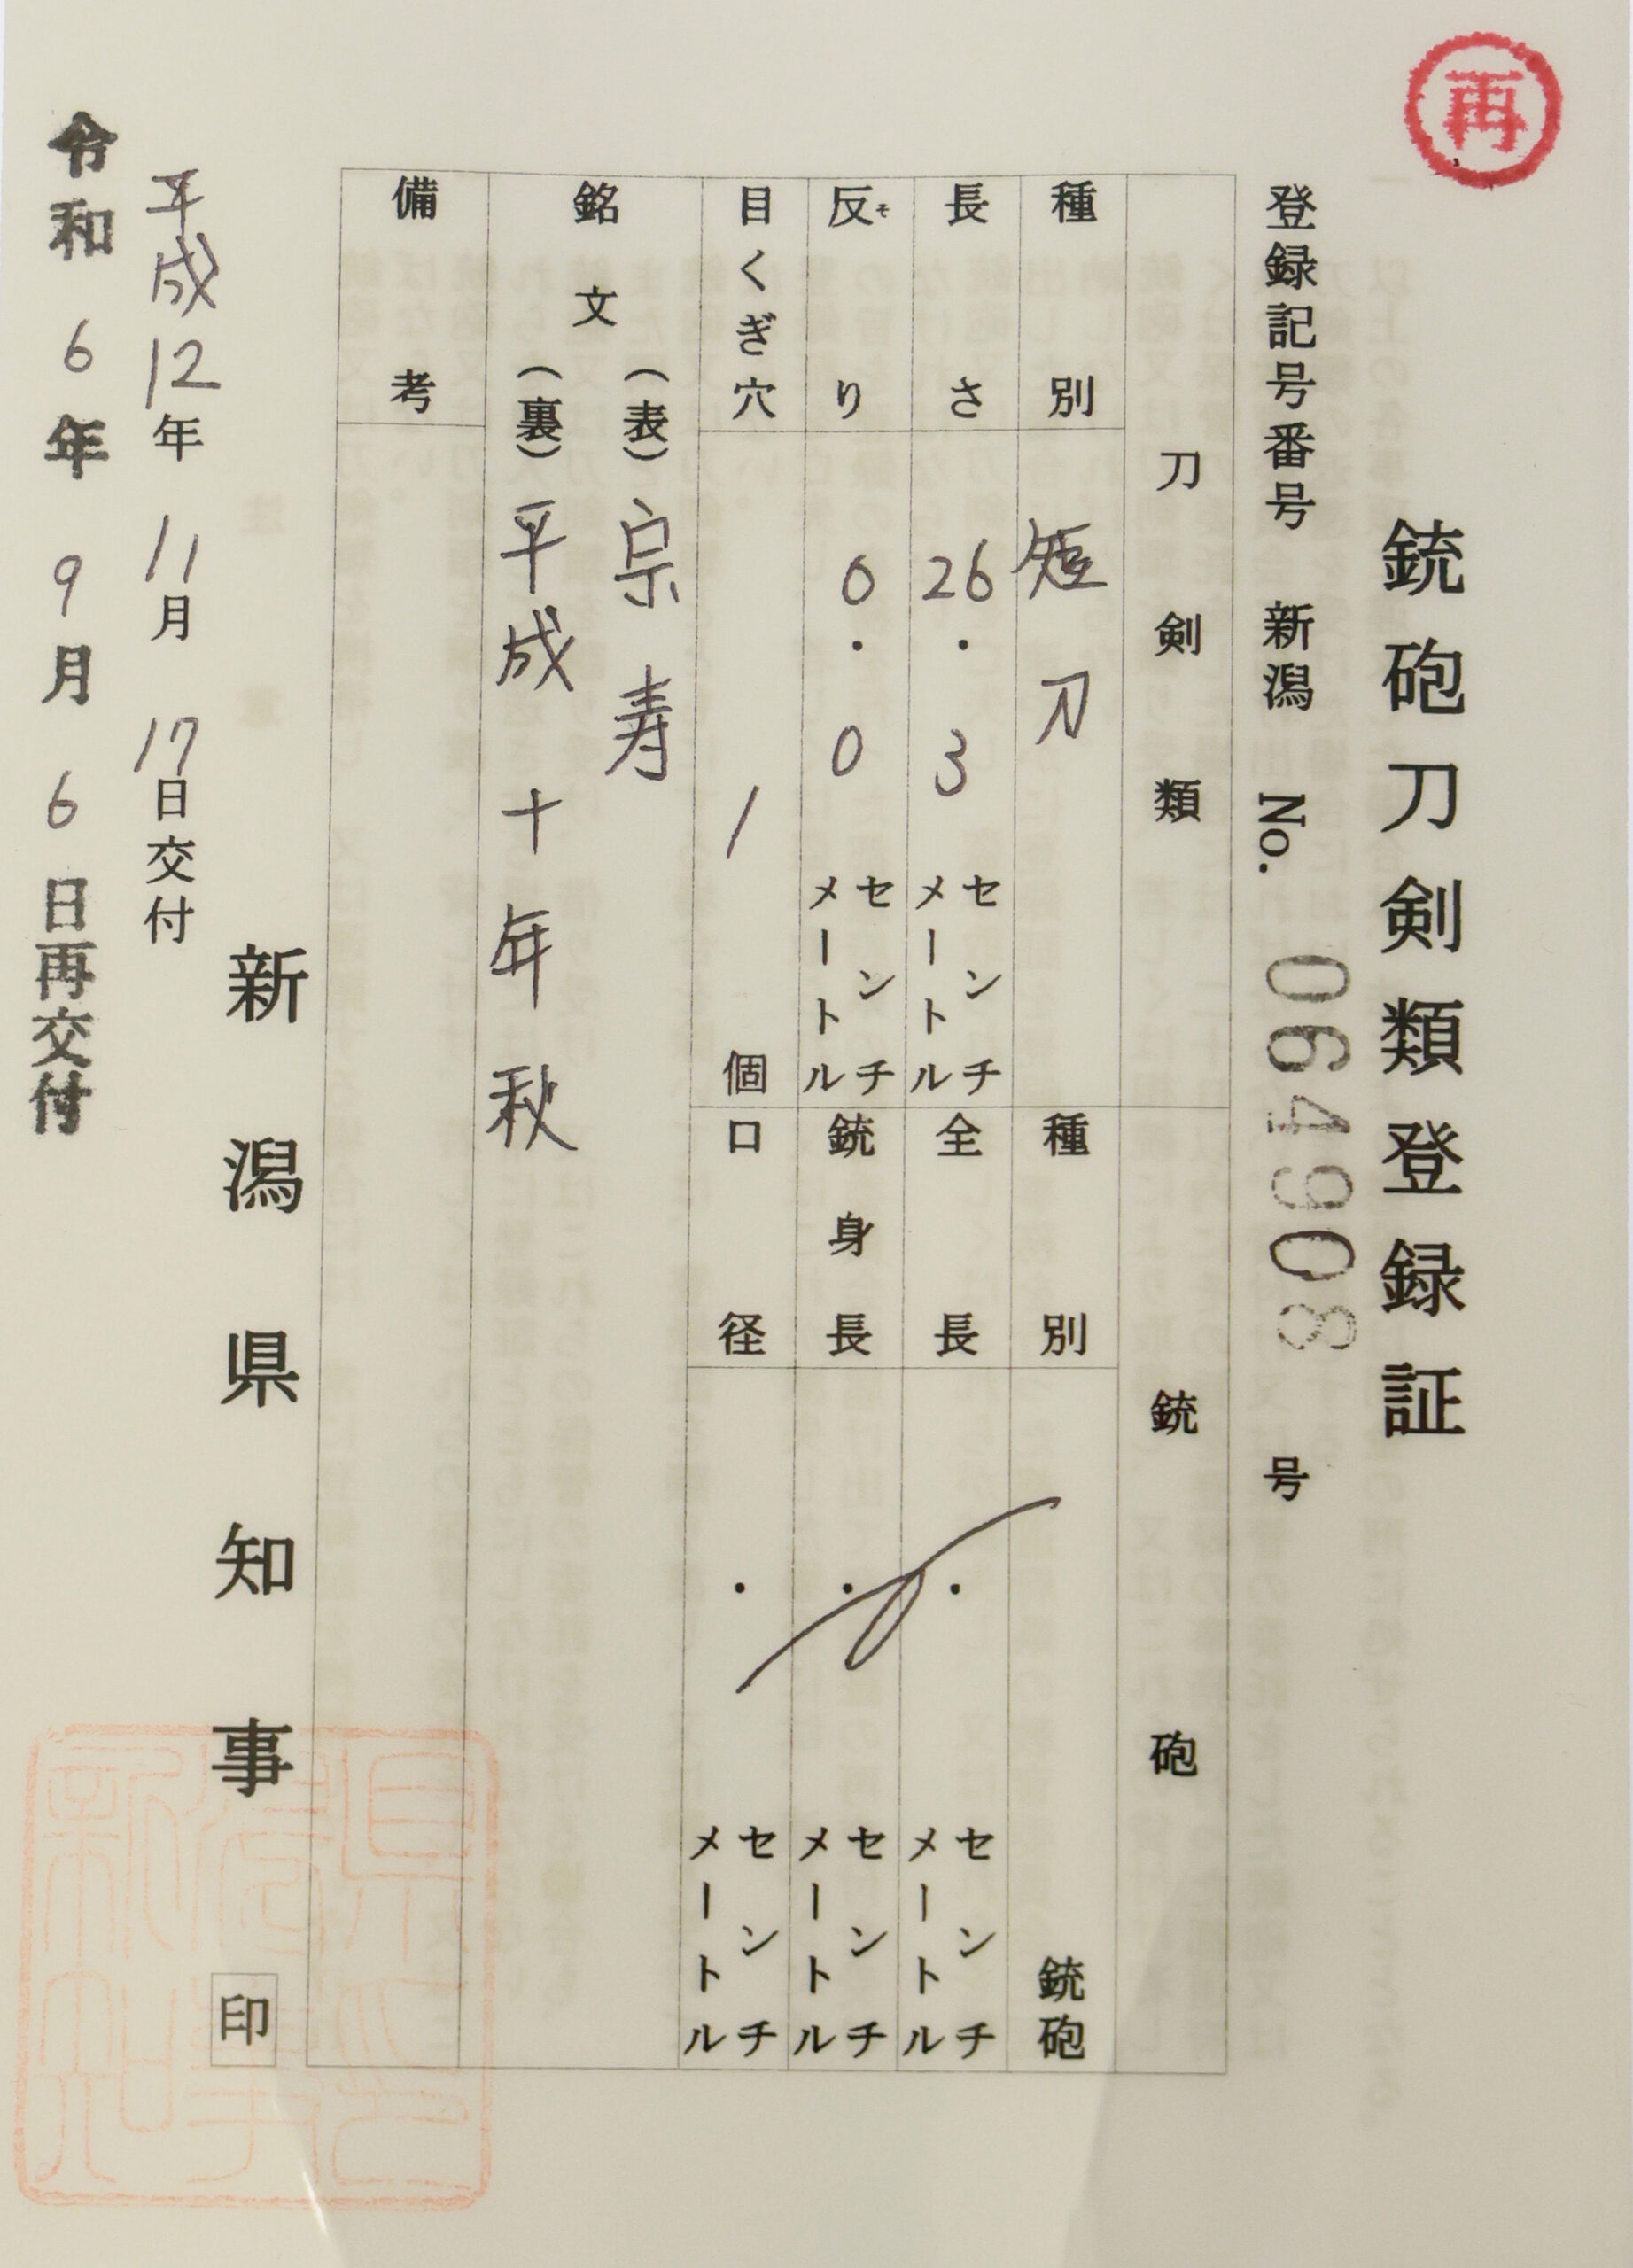 再
銃砲刀剣類登録証
登録記号番号 新潟 No. 064908 号
刀剣類
銃砲
種別 短刀
種別 銃砲
長さ 26.3 センチメートル
全長 . センチメートル
反り 0.0 センチメートル
そ
銃身長 . センチメートル
目くぎ穴 1 個
口径 . センチメートル
銘文 (表) 宗寿
(裏) 平成十年秋
備考
新潟県知事 印
平成12年11月17日交付
令和6年9月6日再交付